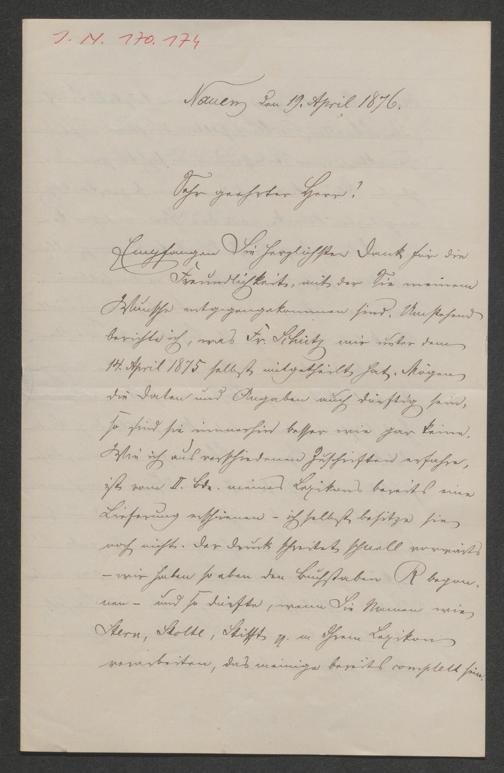 J. N. 170.174
Nauen, den 19. April 1876.
Sehr geehrter Herr!
Empfangen Sie herzlichsten Dank für die
Freundlichkeit, mit der Sie meinem
Wunsche entgegengekommen sind. Umstehend
berichte ich, was Fr. Schütz mir unter dem
14. April 1875 selbst mitgetheilt hat. Mögen
die Daten und Angaben auch dürftig sein,
so sind sie immerhin besser wie gar keine.
Wie ich aus verschiedenen Zuschriften erfahre,
ist vom II. Bde. meines Lexikons bereits eine
Lieferung erschienen – ich selbst besitze sie
noch nicht. Der Druck schreitet schnell vorwärts
– wir haben so eben den Buchstaben R begon-
nen – und so dürfte, wenn Sie Namen wie
Stern, Stolle, Stifft pp. in Ihrem Lexikon
verarbeiten, das meinige bereits complett sein.